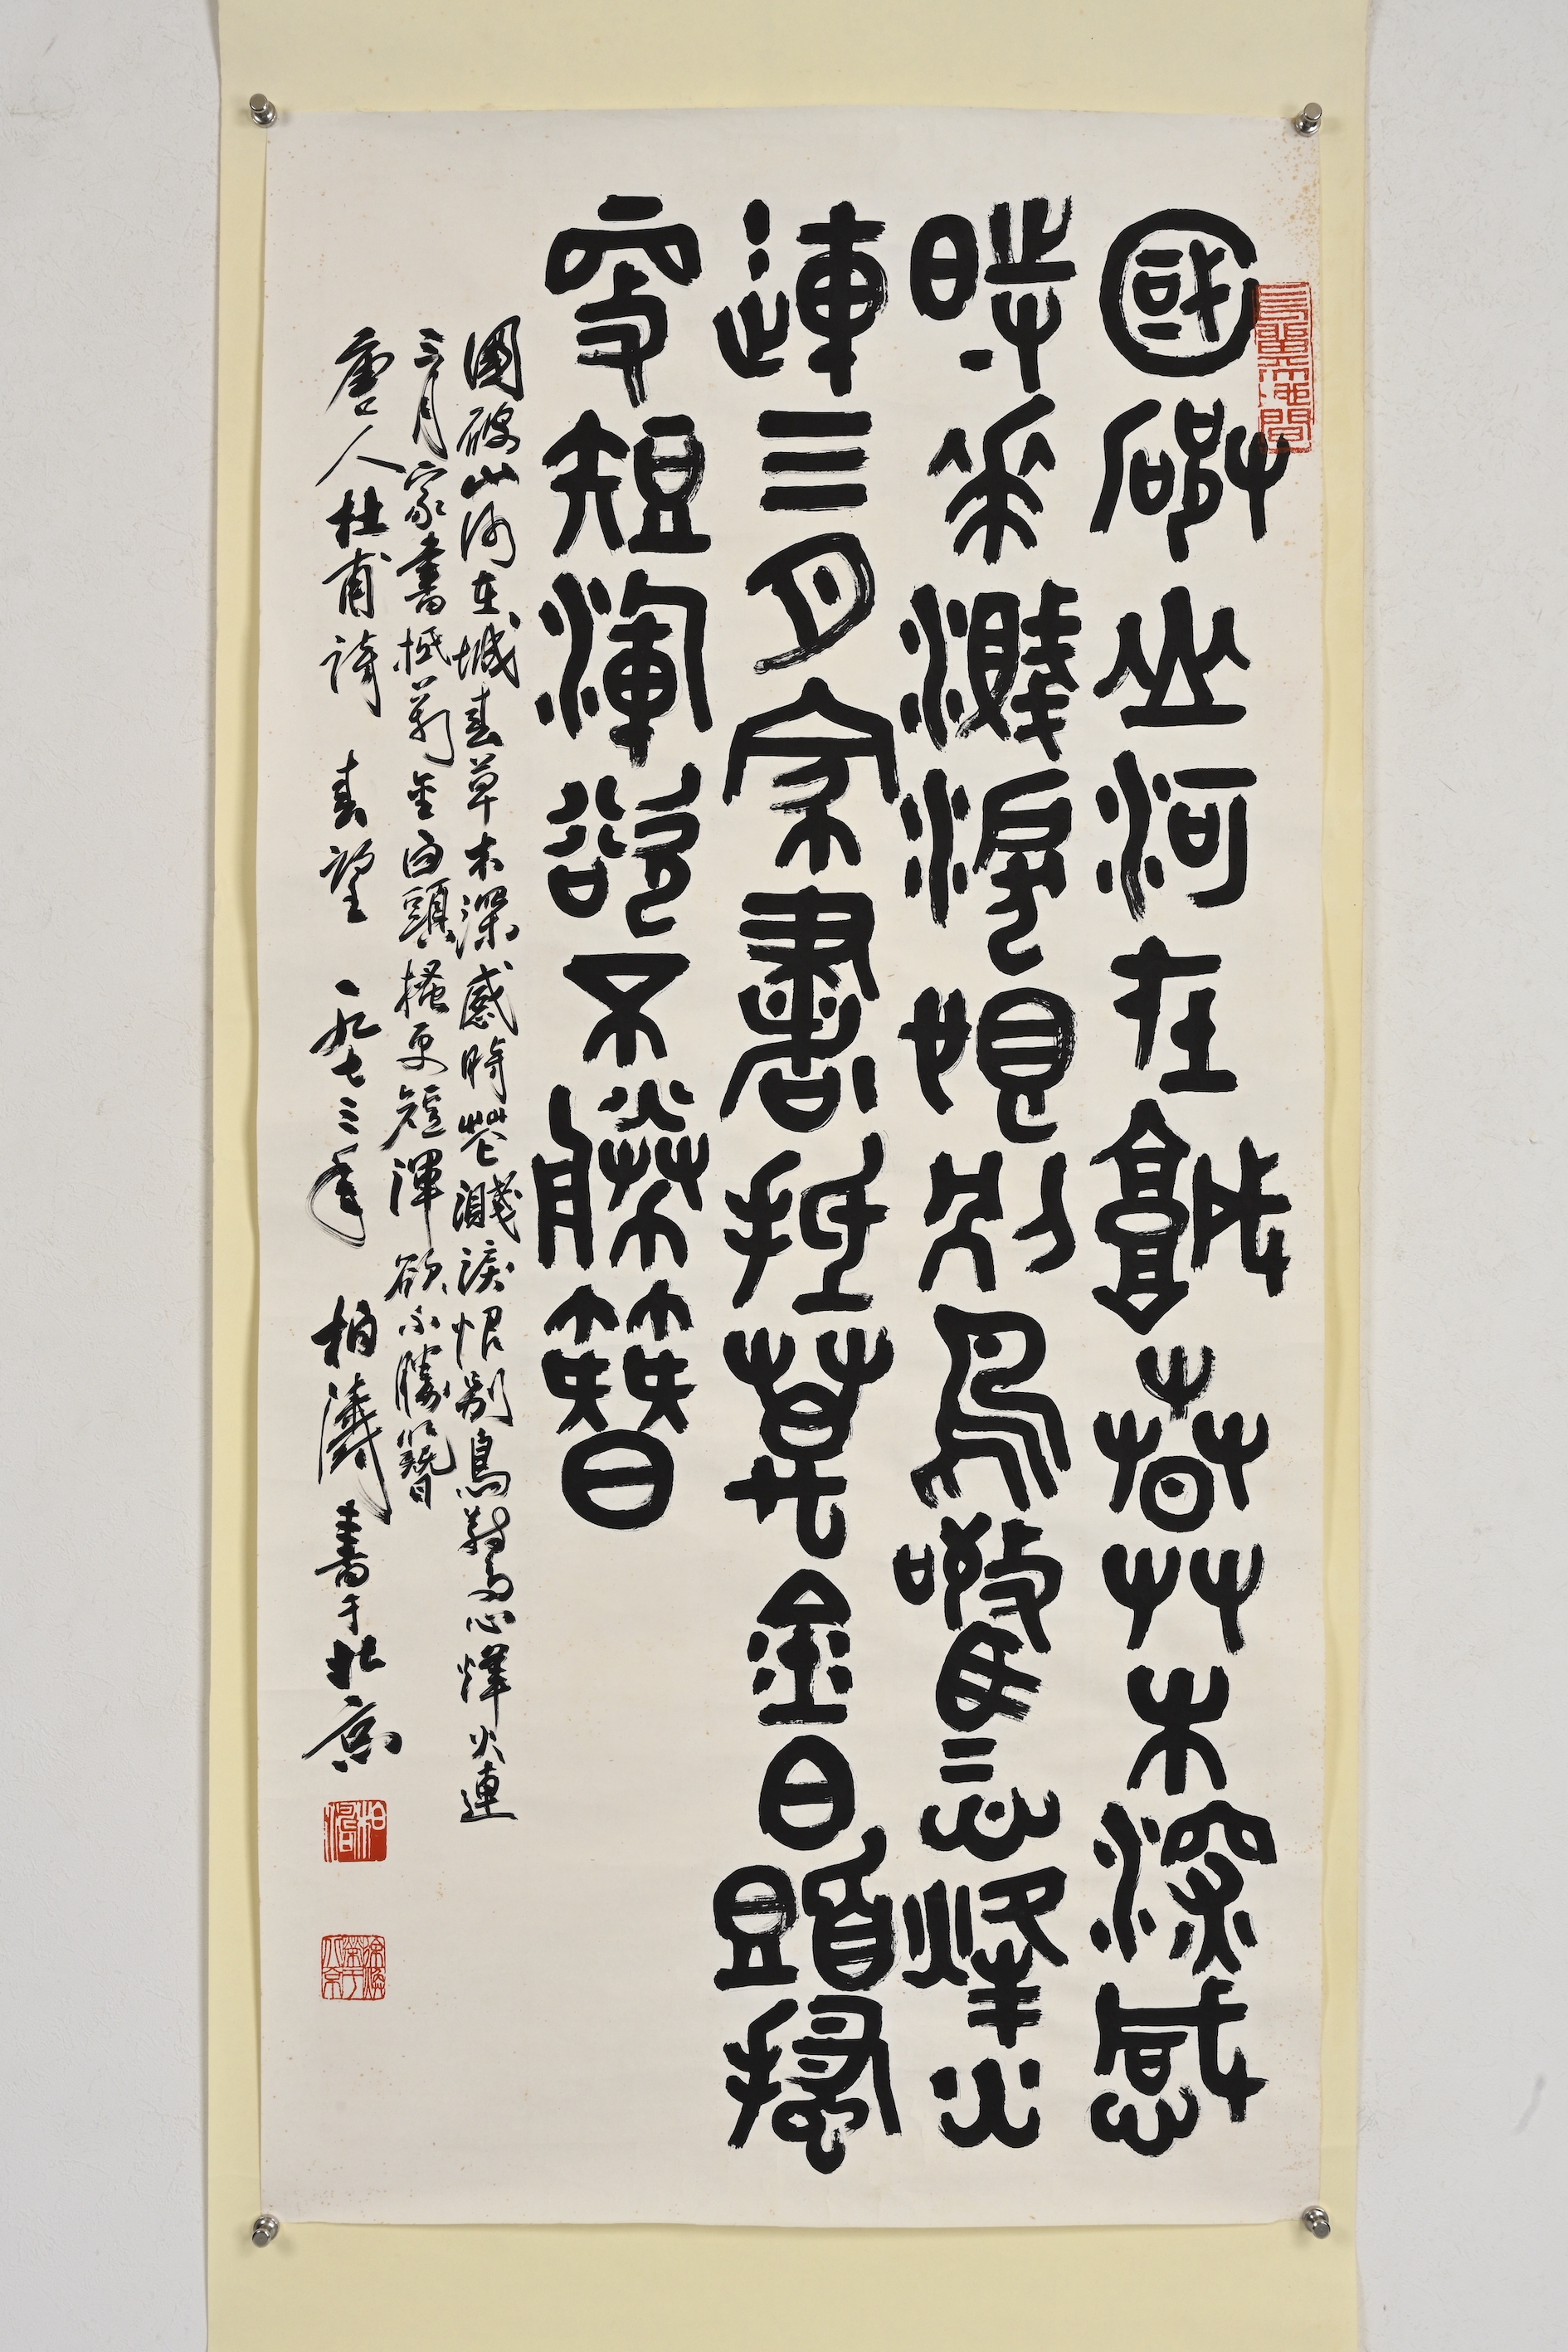 國破山河在城春艸木深感
時花濺淚恨別鳥驚心烽火
連三月家書抵萬金白頭搔
更短渾欲不勝簪
國破山河在城春草木深感時花濺淚恨別鳥驚心烽火連
三月家書抵萬金白頭搔更短渾欲不勝簪
唐人杜甫詩 春望 一九七三年 柏濤書于北京
柏濤